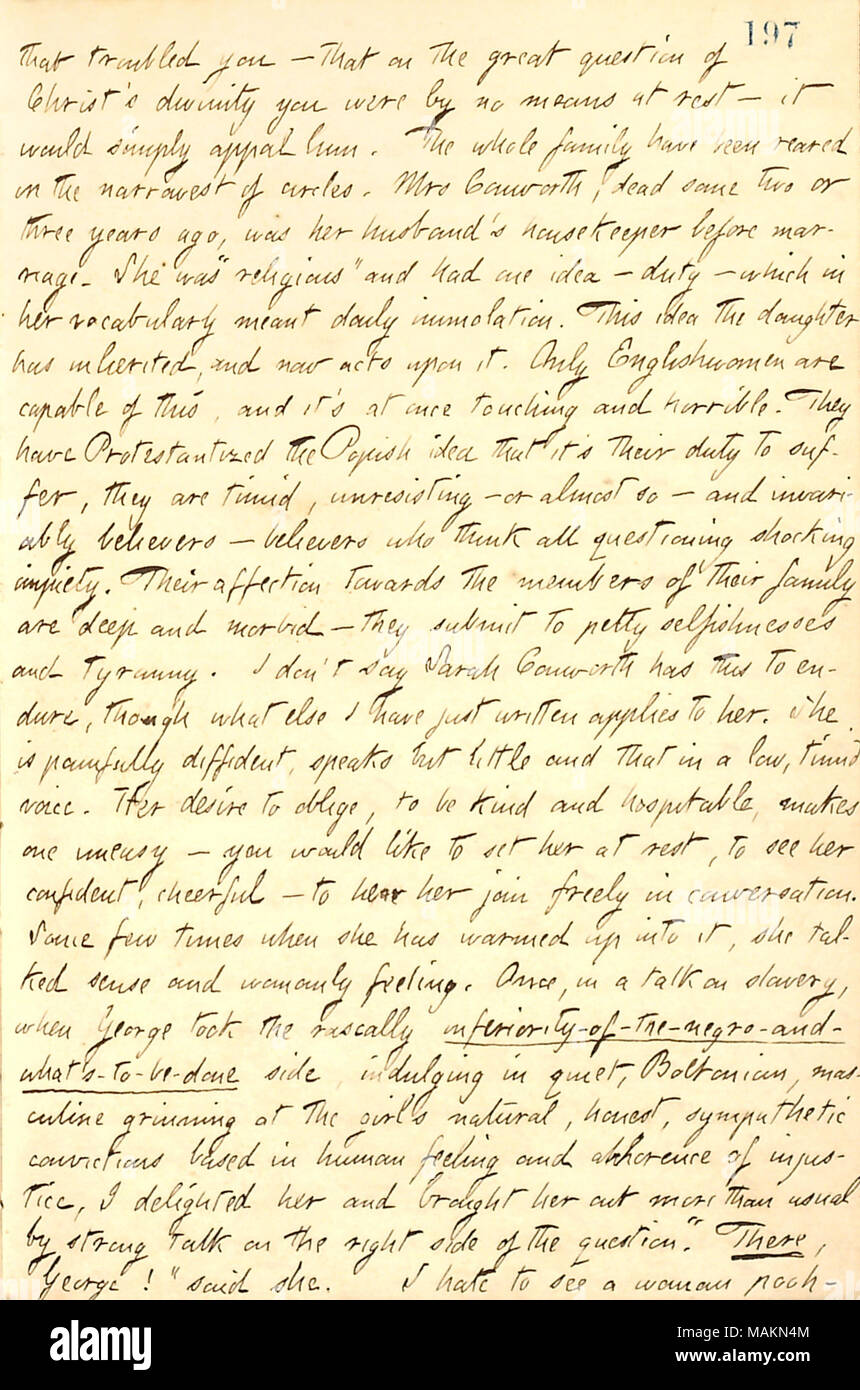 197
that troubled you — that on the great question of
Christ's divinity you were by no means at rest — it
would simply appal him. The whole family have been reared
in the narrowest of circles. Mrs Conworth, dead some two or
three years ago, was her husband's housekeeper before mar-
riage. She was "religious" and had one idea — duty — which in
her vocabulary meant daily immolation. This idea the daughter
has inherited, and now acts upon it. Only Englishwomen are
capable of this, and it's at once touching and horrible. They
have Protestantized the Popish idea that it's their duty to suf-
fer, they are timid, unresisting — or almost so — and invari-
ably believers — believers who think all questioning shocking
impiety. Their affection towards the members of their family
are deep and morbid — they submit to petty selfishnesses
and tyranny. I don't say Sarah Conworth has this to en-
dure, though what else I have just written applies to her. She
is painfully diffident, speaks but little and that in a low, timid
voice. Her desire to oblige, to be kind and hospitable, makes
one uneasy — you would like to set her at rest, to see her
confident, cheerful — to hear her join freely in conversation.
Some few times when she has warmed up into it, she tal-
ked sense and womanly feeling. Once, in a talk on slavery,
when George took the rascally inferiority-of-the-negro-and-
what's-to-be-done side, indulging in quiet, Boltonian, mas-
culine grinning at the girl's natural, honest, sympathetic
convictions based in human feeling and abhorence of injus-
tice, I delighted her and brought her out more than usual
by strong talk on the right side of the question. "There,
George!" said she. I hate to see a woman pooh-
alamy
Image ID: MAKN4M
www.alamy.com